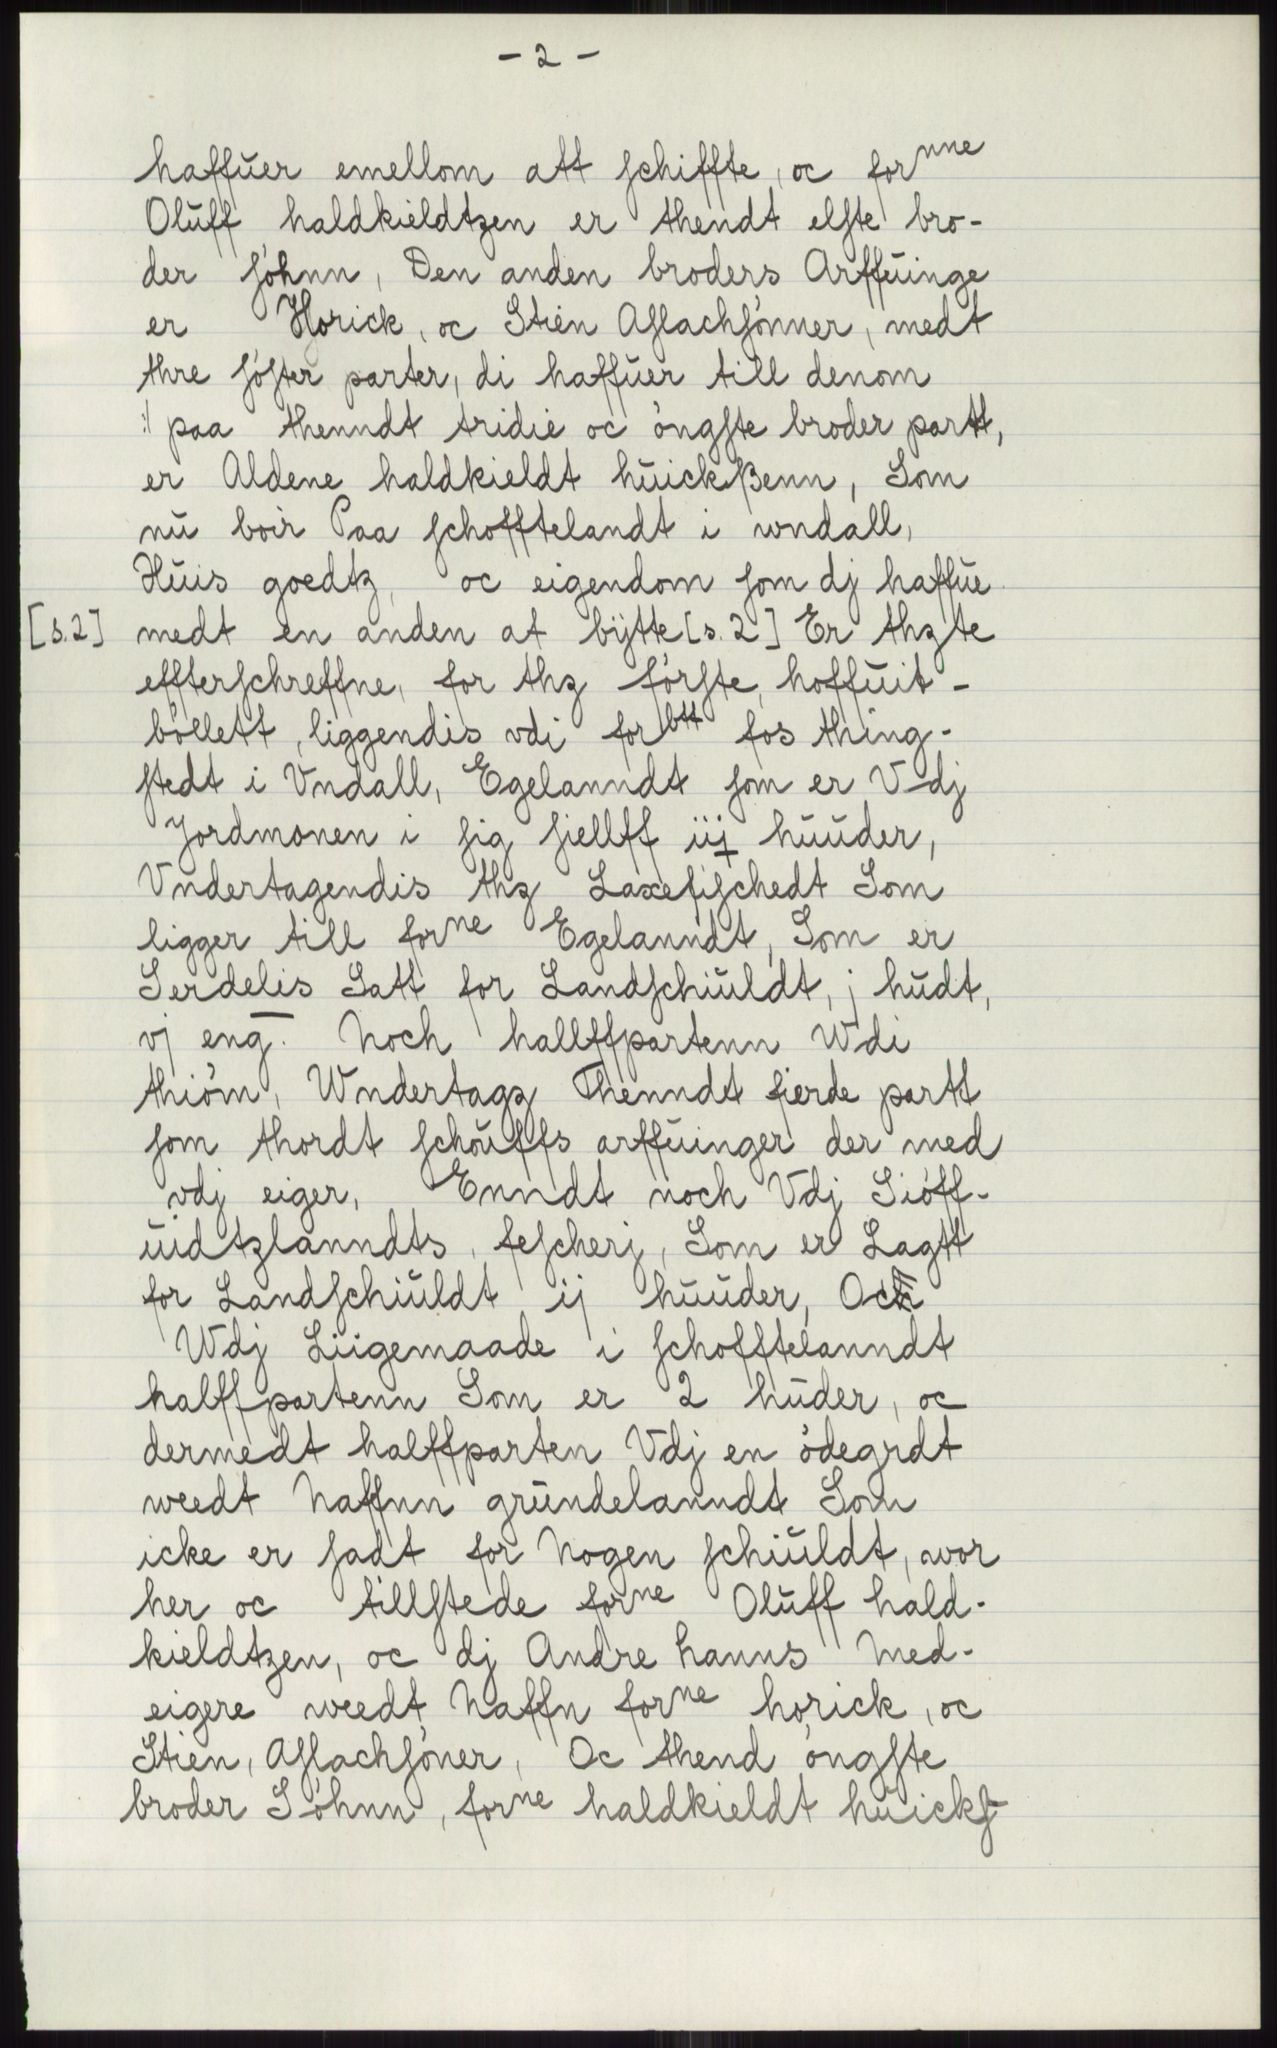 - 2 -
haffuer emellom att schiffte, oc fornne
Oluff haldkieldtzen er thendt elste bro-
der söhnn, Den anden broders Arffuinge
er Horick, oc Stien Aslachsönner, medt
thre söster parter, di haffuer till denom
:/ paa thenndt tridie oc öngste broder partt,
er Aldene haldkieldt huickßenn, Som
nu boir Paa schofftelandt i wndall,
Huis goedtz, oc eigendom som dj haffue
[s.2] medt en anden at bÿtte [s. 2] Er thzte
effterschreffne, for thz förste, hoffuit-
böllett, liggendis vdi forbtt fos thing-
stedt i Vndall, Egelanndt som er Vdj
Jordmonen i sig siellff iij huuder,
Vndertagendis thz Laxefischedt Som
ligger till forne Egelanndt, Som er
Serdelis Satt for Landschiuldt, j hudt,
vj eng. Noch hallffpartenn Wdi
thiöm, Wndertagz Thenndt fierde partt
som thordt schouffs arffuinger der med
vdj eiger, Enndt noch Vdj Siöff-
uidtzlanndts, fescherj, Som er Lagtt
for Landschiuldt ij huuder, Och
Wdj Liigemaade i schofftelanndt
halffpartenn Som er 2 huder, oc
dermedt halffparten Vdj en ödegrdt
weedt Naffnn grundelanndt Som
icke er sadt for Nogen schiuldt, wor
her oc tillstede forne Oluff hald-
kieldtzen, oc dj Andre hanns Med-
eigere weedt Naffn forne horick, oc
Stien, Aslachsöner, Oc thend öngste
broder Söhnn, forne haldkieldt huicks-